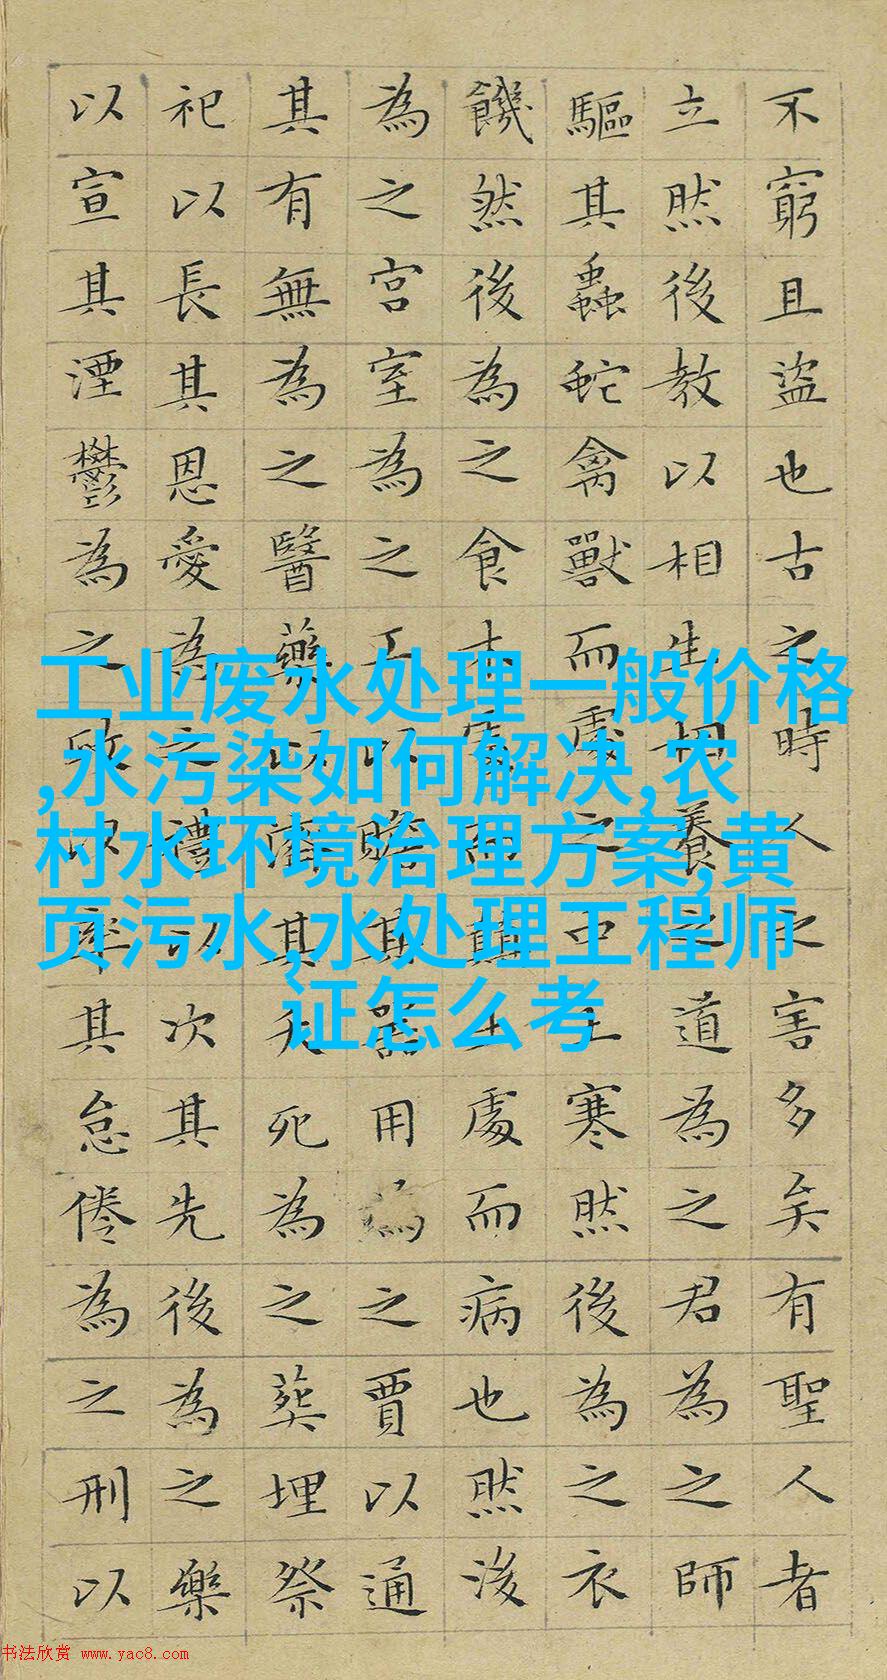 不窮且盜也古之時人之害多矣有聖人者
立然後教以相生相養之道為之君為之師
驅其蟲蛇禽獸而處之中土寒然後為之衣
饑然後為之食木處而顛土處而病也然後
為之宮室為之工以贍其器用為之賈以通
其有無為之醫藥以濟其夭死為之葬埋祭
祀以長其恩愛為之禮以次其先後為之樂
以宣其湮鬱為之政以率其怠倦為之刑以
工业废水处理一般价格
,水污染如何解决,农
村水环境治理方案,黄
页污水,水处理工程师
证怎么考
书法欣赏 www.yac8.com